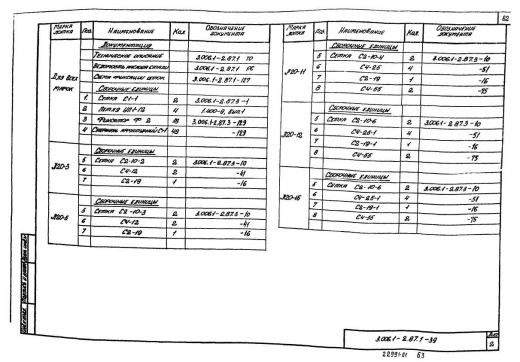 62
Марка лотка
Поз.
Наименование
Кол.
Обозначение документа
Документация
Техническое описание 3.006.1-2.87.1 ТО
3.006.1-2.87.1 РС
3.006.1-2.87.1-117
Для всех марок
Сборочные единицы
1 Сетка С1-1 2 3.006.1-2.87.3-1
2 Петля 4 1.400-9, вып.1
3 Фиксатор Ф 2 18 3.006.1-2.87.3-129
4 48 -129
Л20-3
Сборочные единицы
5 Сетка С2-10-2 2 3.006.1-2.87.3-10
6 С4-12 2 -41
7 С2-19 1 -16
Л20-5
Сборочные единицы
5 Сетка С2-10-3 2 3.006.1-2.87.3-10
6 С4-12 2 -41
7 С2-19 1 -16
Марка лотка
Поз.
Наименование
Кол.
Обозначение документа
Л20-11
Сборочные единицы
5 Сетка С2-10-4 2 3.006.1-2.87.3-10
6 С4-25 4 -51
7 С2-19 1 -16
8 С4-55 2 -75
Л20-12
Сборочные единицы
5 Сетка С2-10-6 2 3.006.1-2.87.3-10
6 С4-25-1 4 -51
7 С2-19-1 1 -16
8 С4-55 2 -75
Л20-15
Сборочные единицы
5 Сетка С2-10-6 2 3.006.1-2.87.3-10
6 С4-25-1 4 -51
7 С2-19-1 1 -16
8 С4-55 2 -75
3.006.1-2.87.1-39
Лист
2
22991-01 63